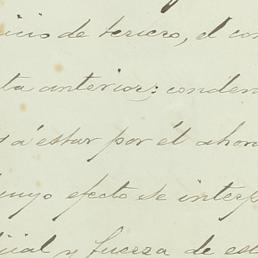 icio de tercero, el con
ta anterior; conden
y a estar por él ahora
cuyo efecto se interp
icial y fuerza de est